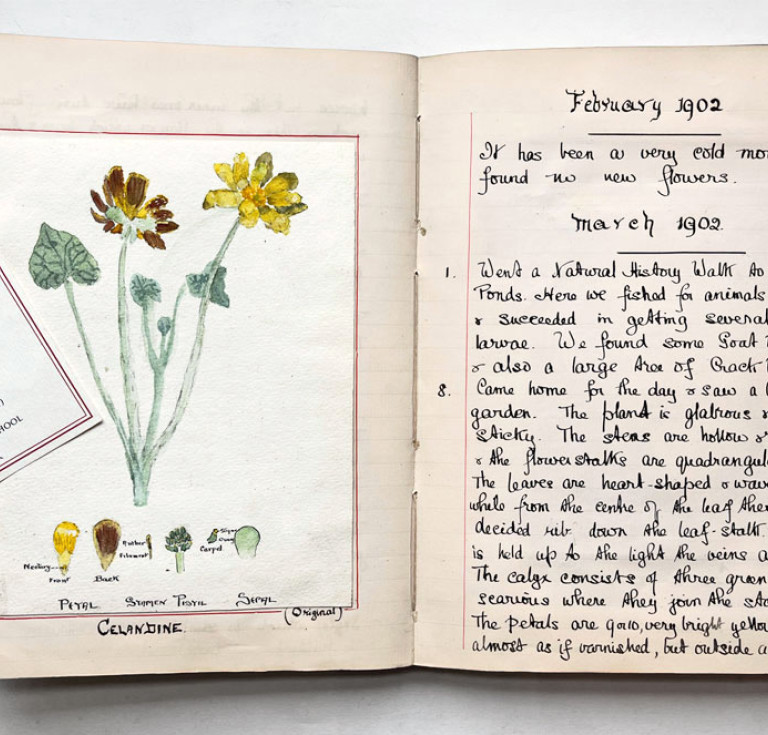 HOOL
Nectary
Front
Back
Anther
Filament
Stigma
Ovary
Carpel
PETAL STAMEN PISTIL SEPAL
(Original)
CELANDINE.
February 1902
It has been a very cold mon
found no new flowers.
March 1902.
1. Went a Natural History Walk to
Ponds. Here we fished for animals
& succeeded in getting several
larvae. We found some Goat
& also a large tree of Crack
8. Came home for the day & saw a
garden. The plant is glabrous &
sticky. The stems are hollow &
& the flowerstalks are quadrangul
The leaves are heart-shaped & wav
white from the centre of the leaf ther
decided rib down the leaf-stalk.
is held up to the light the veins a
The calyx consists of three green
scarious where they join the sta
The petals are 9 or 10, very bright yello
almost as if varnished, but outside a